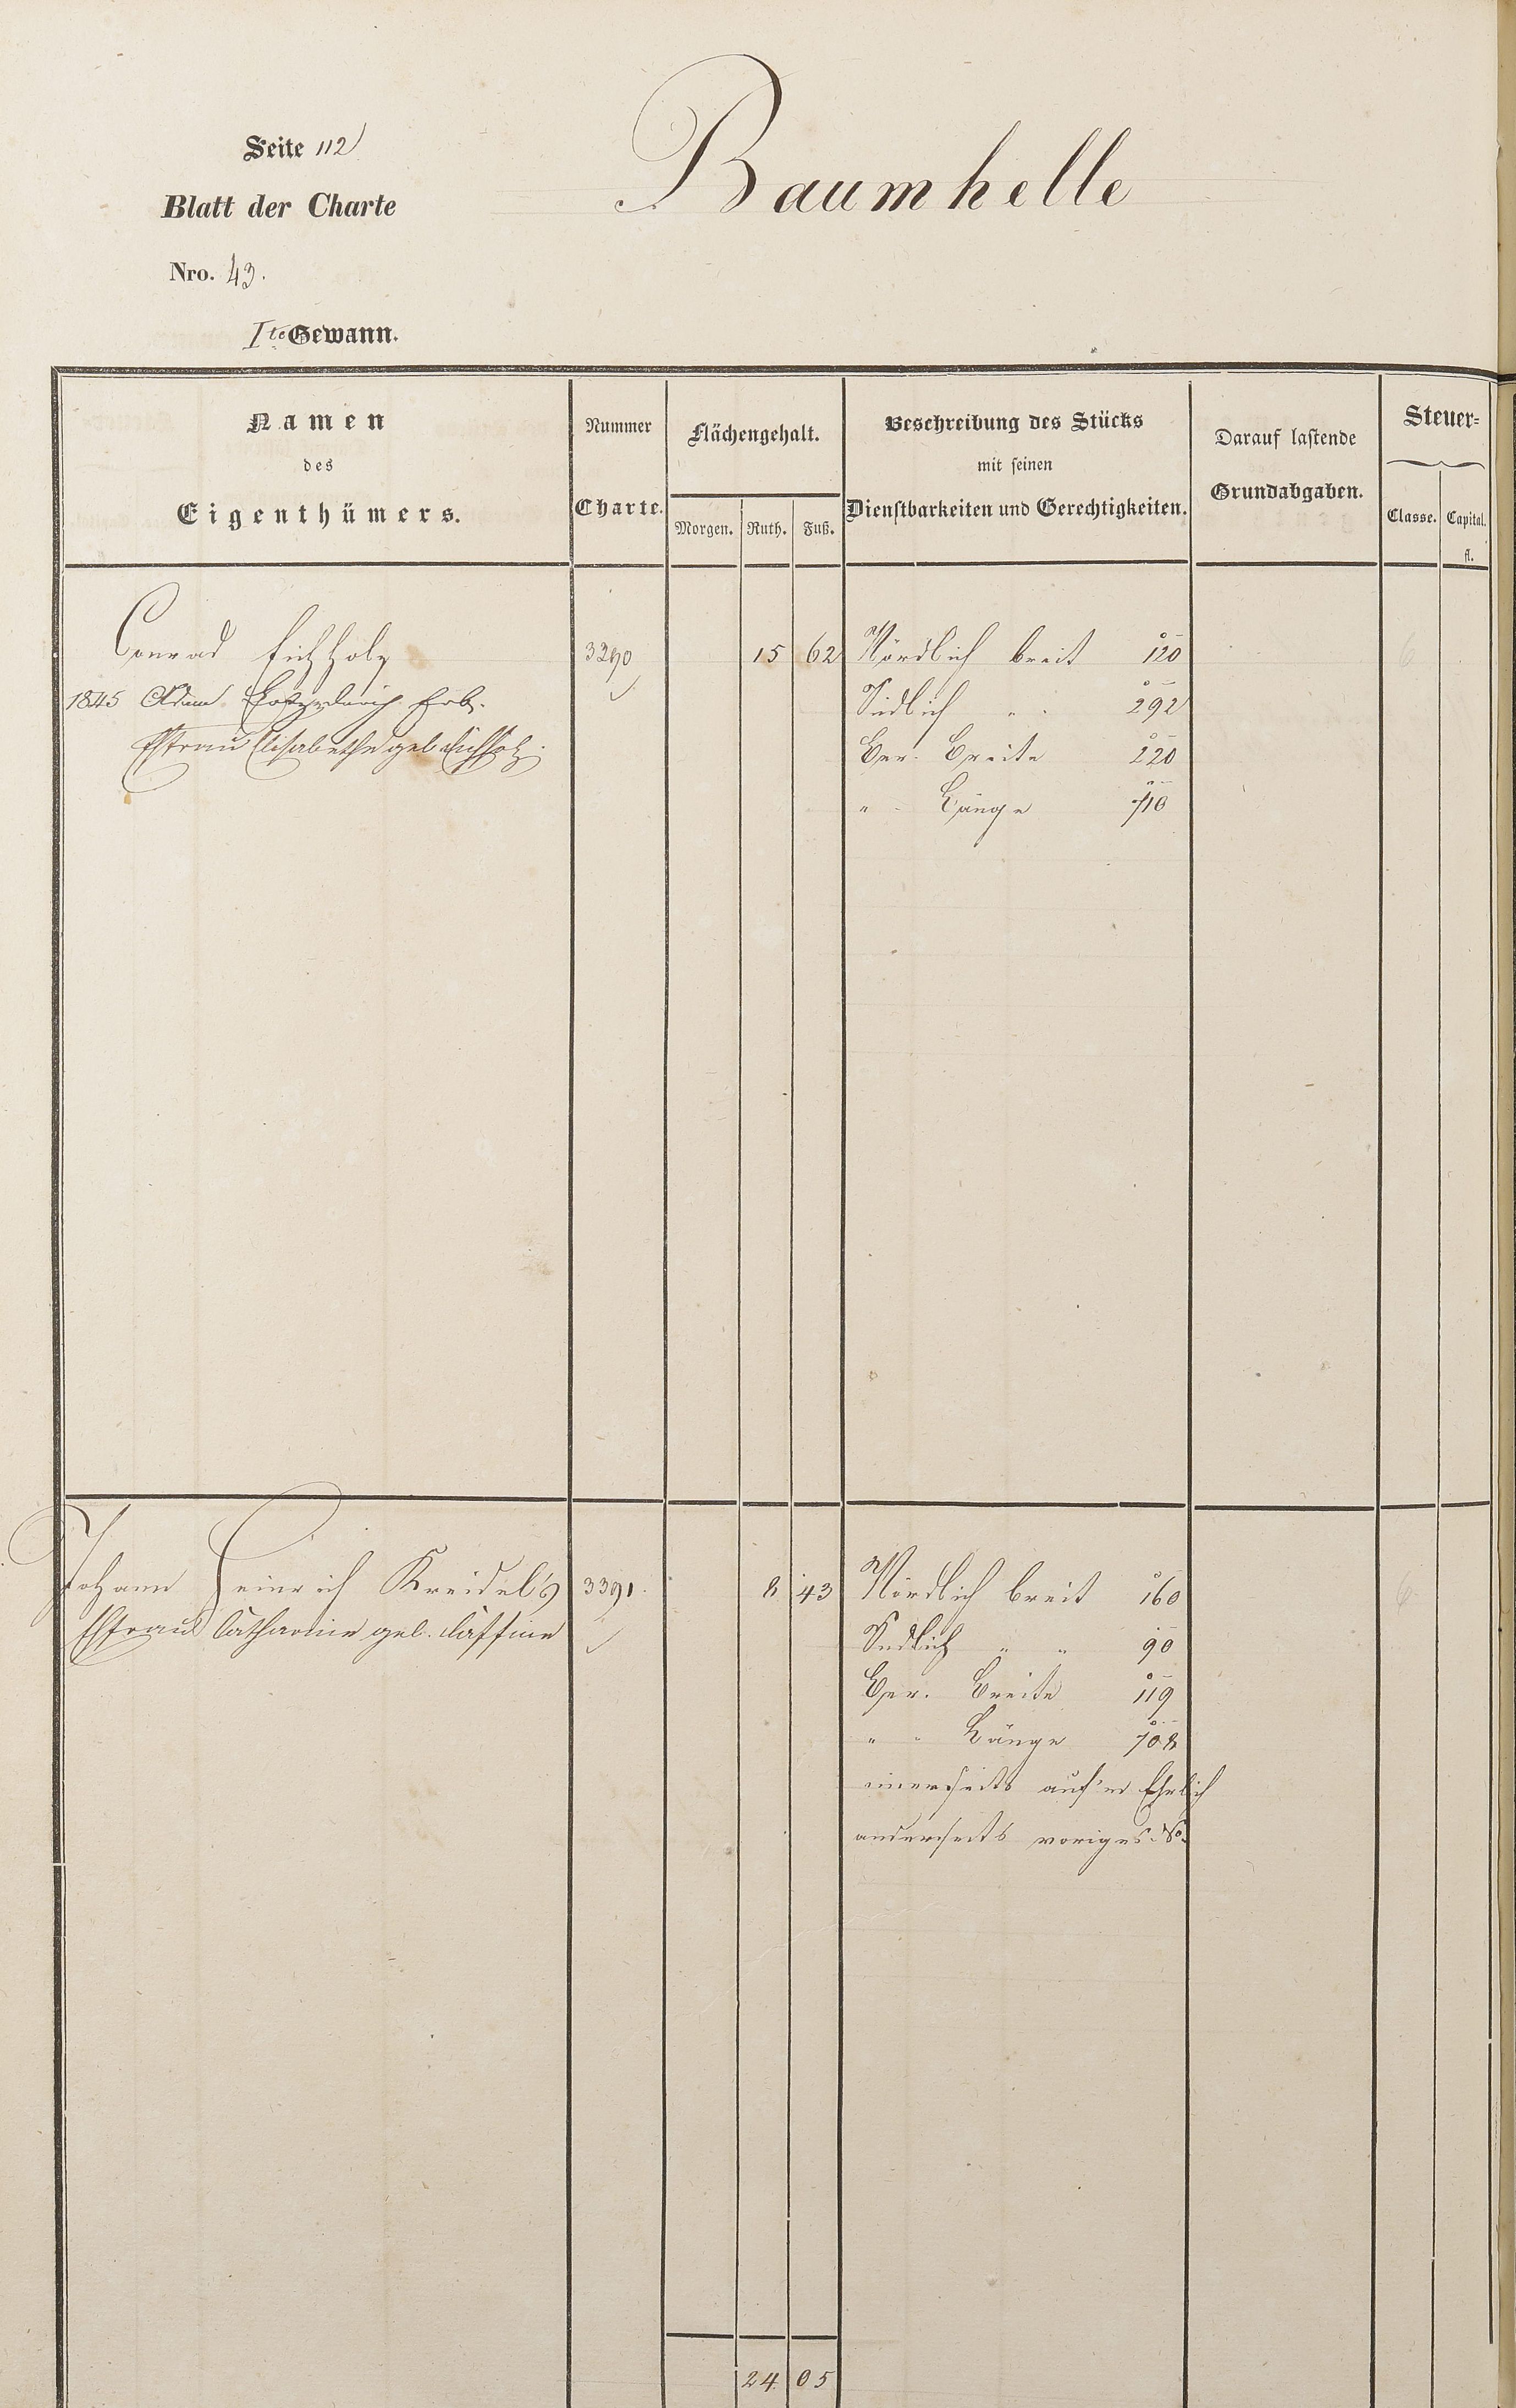 Seite 112
Blatt der Charte
Nro. 43.
Ite Gewann.
Baumhelle
Namen
des
Eigenthümers.
Nummer
Charte.
Flächengehalt.
Morgen. Ruth. Fuß.
Beschreibung des Stücks
mit seinen
Dienstbarkeiten und Gerechtigkeiten.
Darauf lastende
Grundabgaben.
Steuer-
Classe. Capital.
fl.
Conrad Eichholz 3290 15 62 Nördlich breit 120 6
1845 Adam Erb. Südlich " " 292
Ehefrau Elisabethe geb. Eichholz. Ger. Breite 220
" " Länge 710
Johann Heinrich Kreidel's 3391. 8 43 Nördlich breit 160 6
Ehefrau Catharine geb. Südlich " " 90
Ger. Breite 119
" " Länge 708
einerseits auf'm Ehrlich
anderseits voriges No.
24 05